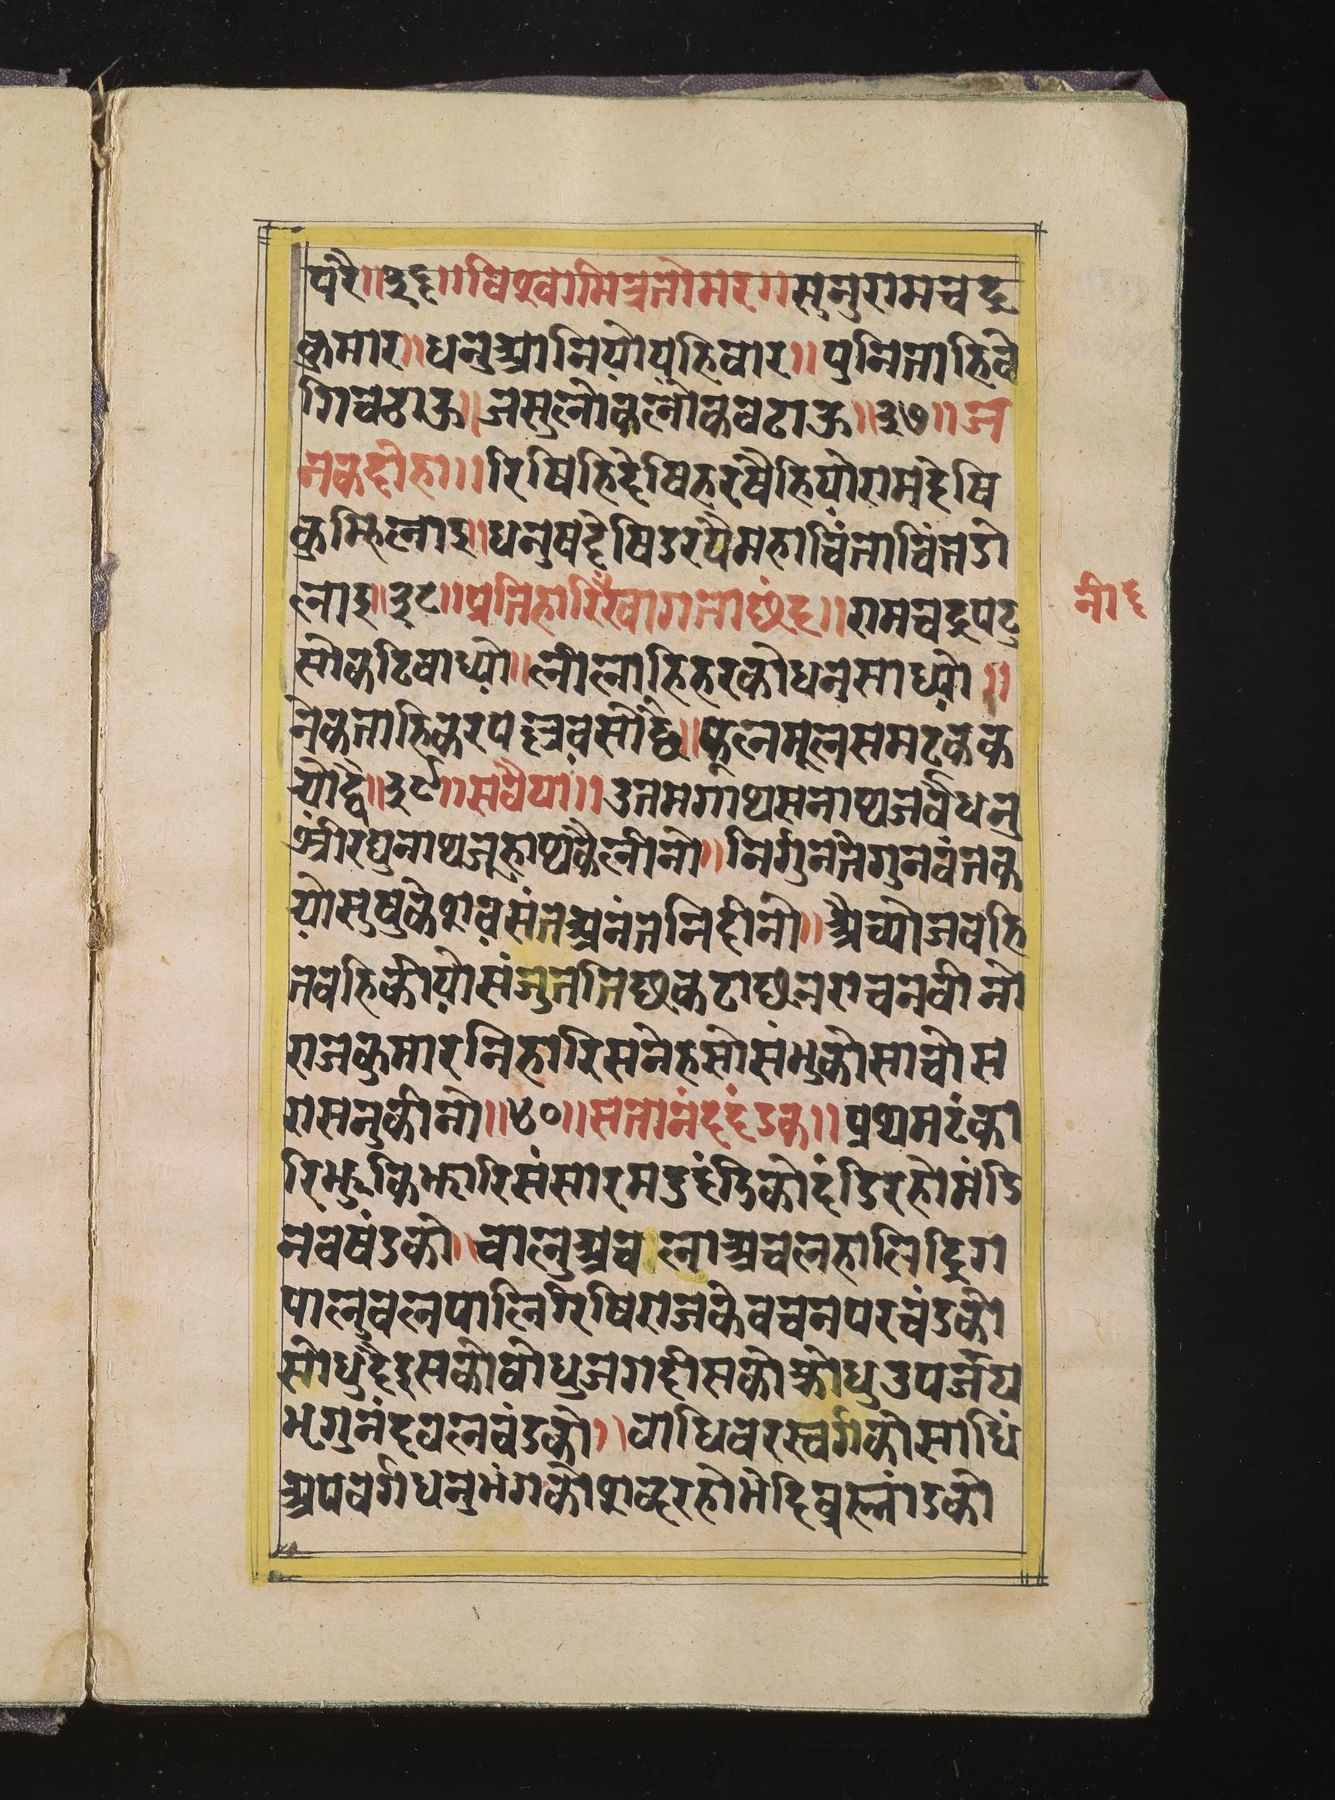 परै॥३६॥विश्वामित्रतोमर॥सुनुरामचद्र
कुमार॥धनुआनियोयहिवार॥पुनिताहिवे
गिचढाऊ॥जसुलोकलोकबढाऊ॥३७॥ज
नकदोहा॥रिषिहिदेषिहरषैहियोरामदेषि
कुम्हिलाइ॥धनुषदेषिडरपैमहाचिंताचिंतडो
लाइ॥३८॥प्रतिहारिस्वागताछंद॥रामचद्रपटु
सोकटिबाध्यो॥लीलाहिहरकोधनुसाध्यो॥
नेकताहिकरपद्मवसोछ्वै॥फूलमूलसमटूकक
योद्वै॥३९॥सवैया॥उतमगाथसनाथजबैधनु
श्रीरघुनाथजूहाथकैलीनो॥निर्गुनतेगुनवंतक
योसुषुकेशवसंतअनंतनिदीनो॥अैच्योजबहि
तबहिकीयोसंजुततिछकटाछनराचनवीनो
राजकुमारनिहारिसनेहसोसंभुकोसाचोस
रासनुकीनो॥४०॥सतानंददंडक॥प्रथमटंको
रिझुकिझारिसंसारमदुदंडकोदंडिरहोमंडि
नवषंडको॥चालुअचलाअचलहालिदिग
पालुवलपालिरिषिराजकेवचनपरचंडको
सोधुदैइसकोबोधुजगदीसकोक्रोधुउपजैय
भृगुनंदवलवंडको॥बाधिवरस्वर्गकोसाधिं
अपवर्गधनुभंगकोशब्दरहोभेदिब्रह्मांडको
नीद